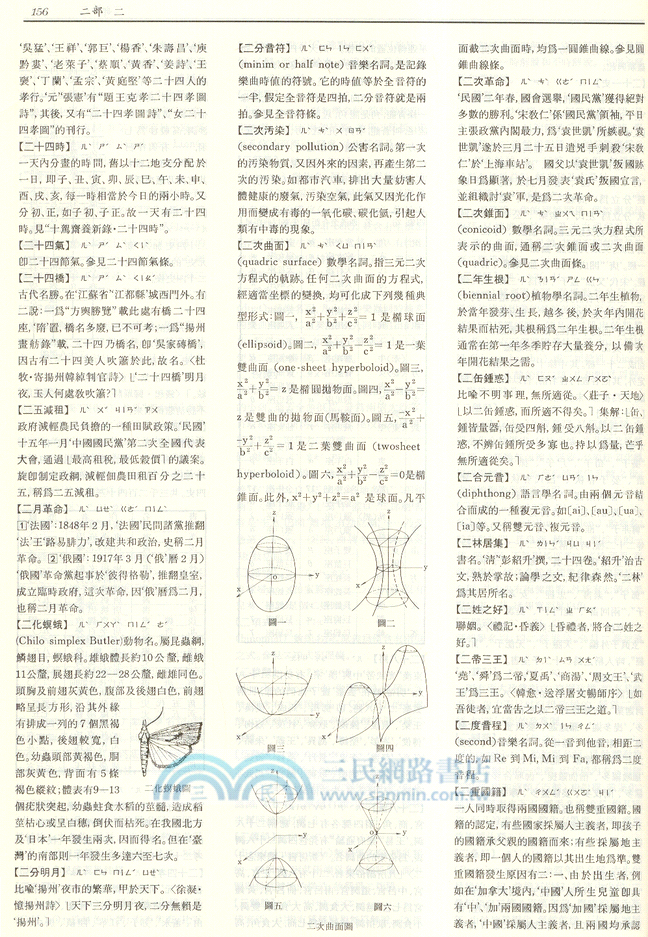 156　　二部　二
‘吳猛’、‘王祥’、‘郭巨’、‘楊香’、‘朱壽昌’、‘庾
黔婁’、‘老萊子’、‘蔡順’、‘黃香’、‘姜詩’、‘王
褒’、‘丁蘭’、‘孟宗’、‘黃庭堅’等二十四人的
孝行。‘元’‘張憲’有“題王克孝二十四孝圖
詩”，其後，又有“二十四孝圖詩”、“女二十
四孝圖”的刊行。
【二十四時】 ㄦˋ ㄕˊ ㄙˋ ㄕˊ
一天內分畫的時間，舊以十二地支分配於
一日，即子、丑、寅、卯、辰、巳、午、未、申、
酉、戌、亥，每一時相當於今日的兩小時。又
分初、正，如子初、子正。故一天有二十四
時。見“十駕齋養新錄·二十四時”。
【二十四氣】 ㄦˋ ㄕˊ ㄙˋ ㄑㄧˋ
即二十四節氣。參見二十四節氣條。
【二十四橋】 ㄦˋ ㄕˊ ㄙˋ ㄑㄧㄠˊ
古代名勝。在‘江蘇省’‘江都縣’城西門外。有
二說：一爲“方輿勝覽”載此處有橋二十四
座，‘隋’置，橋名多廢，已不可考；一爲“揚州
畫舫錄”載，二十四乃橋名，即‘吳家磚橋’，
因古有二十四美人吹簫於此，故名。〈杜
牧·寄揚州韓綽判官詩〉⌊‘二十四橋’明月
夜，玉人何處敎吹簫？⌉
【二五減租】 ㄦˋ ㄨˇ ㄐㄧㄢˇ ㄗㄨ
政府減輕農民負擔的一種田賦政策。‘民國’
十五年一月‘中國國民黨’第二次全國代表
大會，通過⌊最高租稅，最低穀價⌉的議案。
旋卽制定政綱，減輕佃農田租百分之二十
五，稱爲二五減租。
【二月革命】 ㄦˋ ㄩㄝˋ ㄍㄜˊ ㄇㄧㄥˋ
1‘法國’：1848年2月，‘法國’民間諸黨推翻
‘法’王‘路易腓力’，改建共和政治，史稱二月
革命。2‘俄國’：1917年3月（‘俄’曆2月）
‘俄國’革命黨起事於‘彼得格勒’，推翻皇室，
成立臨時政府，這次革命，因‘俄’曆爲二月，
也稱二月革命。
【二化螟蛾】 ㄦˋ ㄏㄨㄚˋ ㄇㄧㄥˊ ㄜˊ
(Chilo simplex Butler)動物名。屬昆蟲綱，
鱗翅目，螟蛾科。雄蛾體長約10公釐，雌蛾
11公釐，展翅長約22－28公釐，雌雄同色。
頭胸及前翅灰黃色，腹部及後翅白色，前翅
略呈長方形，沿其外緣
有排成一列的7個黑褐
色小點，後翅較寬，白
色。幼蟲頭部黃褐色，胴
部灰黃色，背面有5條
褐色縱紋；體表有9—13
二化螟蛾圖
個疣狀突起，幼蟲蛀食水稻的莖髓，造成稻
莖枯心或呈白穗，倒伏而枯死。在我國北方
及‘日本’一年發生兩次，因而得名。但在‘臺
灣’的南部則一年發生多達六至七次。
【二分明月】 ㄦˋ ㄈㄣ ㄇㄧㄥˊ ㄩㄝˋ
比喩‘揚州’夜市的繁華，甲於天下。〈徐凝·
憶揚州詩〉⌊天下三分明月夜，二分無賴是
‘揚州’。⌉
【二分音符】 ㄦˋ ㄈㄣ ㄧㄣ ㄈㄨˊ
(minim or half note) 音樂名詞。是記錄
樂曲時値的符號。它的時値等於全音符的
一半，假定全音符是四拍，二分音符就是兩
拍。參見全音符條。
【二次污染】 ㄦˋ ㄘˋ ㄨ ㄖㄢˇ
(secondary pollution) 公害名詞。第一次
的污染物質，又因外來的因素，再產生第二
次的污染。如都市汽車，排出大量妨害人
體健康的廢氣，污染空氣，此氣又因光化作
用而變成有毒的一氧化碳、碳化氫，引起人
類有中毒的現象。
【二次曲面】 ㄦˋ ㄘˋ ㄑㄩ ㄇㄧㄢˋ
(quadric surface) 數學名詞。指三元二次
方程式的軌跡。任何二次曲面的方程式，
經適當坐標的變換，均可化成下列幾種典
型形式：圖一，x²/a²+y²/b²+z²/c²=1 是橢球面
(ellipsoid)。圖二，x²/a²+y²/b²−z²/c²=1 是一葉
雙曲面 (one-sheet hyperboloid)。圖三，
x²/a²+y²/b²=z 是橢圓拋物面。圖四，x²/a²−y²/b²=
z 是雙曲的拋物面（馬鞍面）。圖五，−x²/a²+
−y²/b²+z²/c²=1 是二葉雙曲面 (twosheet
hyperboloid)。圖六，x²/a²+y²/b²−z²/c²=0是橢
錐面。此外，x²+y²+z²=a² 是球面。凡平
圖一　圖二
圖三　圖四
圖五　圖六
二次曲面圖
面截二次曲面時，均爲一圓錐曲線。參見圓
錐曲線條。
【二次革命】 ㄦˋ ㄘˋ ㄍㄜˊ ㄇㄧㄥˋ
‘民國’二年春，國會選舉，‘國民黨’獲得絕對
多數的勝利。‘宋敎仁’係‘國民黨’領袖，平日
主張政黨內閣最力，爲‘袁世凱’所嫉視。‘袁
世凱’遂於三月二十五日遣兇手刺殺‘宋敎
仁’於‘上海車站’。　國父以‘袁世凱’叛國跡
象日爲顯著，於七月發表‘袁氏’叛國宣言，
並組織討‘袁’軍，是爲二次革命。
【二次錐面】 ㄦˋ ㄘˋ ㄓㄨㄟ ㄇㄧㄢˋ
(conicoid) 數學名詞。三元二次方程式所
表示的曲面，通稱二次錐面或二次曲面
(quadric)。參見二次曲面條。
【二年生根】 ㄦˋ ㄋㄧㄢˊ ㄕㄥ ㄍㄣ
(biennial root)植物學名詞。二年生植物，
於當年發芽、生長，越冬後，於次年內開花
結果而枯死，其根稱爲二年生根。二年生根
通常在第一年冬季貯存大量養分，以備次
年開花結果之需。
【二缶鍾惑】 ㄦˋ ㄈㄡˇ ㄓㄨㄥ ㄏㄨㄛˋ
比喩不明事理，無所適從。〈莊子·天地〉
⌊以二缶鍾惑，而所適不得矣。⌉ 集解：⌊缶、
鍾皆量器，缶受四斛，鍾受八斛。以二缶鍾
惑，不辨缶鍾所受多寡也。持以爲量，茫乎
無所適從矣。⌉
【二合元音】 ㄦˋ ㄏㄜˊ ㄩㄢˊ ㄧㄣ
(diphthong) 語言學名詞。由兩個元音結
合而成的一種複元音。如〔ai〕、〔au〕、〔ua〕、
〔ia〕等。又稱雙元音、複元音。
【二林居集】 ㄦˋ ㄌㄧㄣˊ ㄐㄩ ㄐㄧˊ
書名。‘清’‘彭紹升’撰，二十四卷。‘紹升’治古
文，熟於掌故；論學之文，紀律森然。‘二林’
爲其居所名。
【二姓之好】 ㄦˋ ㄒㄧㄥˋ ㄓ ㄏㄠˇ
聯姻。〈禮記·昏義〉⌊昏禮者，將合二姓之
好。⌉
【二帝三王】 ㄦˋ ㄉㄧˋ ㄙㄢ ㄨㄤˊ
‘堯’、‘舜’爲二帝，‘夏禹’、‘商湯’、‘周文王’、‘武
王’爲三王。〈韓愈·送浮屠文暢師序〉⌊如
吾徒者，宜當告之以二帝三王之道。⌉
【二度音程】 ㄦˋ ㄉㄨˋ ㄧㄣ ㄔㄥˊ
(second)音樂名詞。從一音到他音，相距二
度的，如 Re 到 Mi，Mi 到 Fa，都稱爲二度
音程。
【二重國籍】 ㄦˋ ㄔㄨㄥˊ ㄍㄨㄛˊ ㄐㄧˊ
一人同時取得兩國國籍。也稱雙重國籍。國
籍的認定，有些國家採屬人主義者，即孩子
的國籍承父親的國籍而來；有些採屬地主
義者，即一個人的國籍以其出生地爲準。雙
重國籍發生原因有二：一、由於出生者，例
如在‘加拿大’境內，‘中國’人所生兒童卽具
有‘中’、‘加’兩國國籍。因爲‘加國’採屬地主
義者，‘中國’採屬人主義者，且兩國均承認
三民網路書店
www.sanmin.com.tw